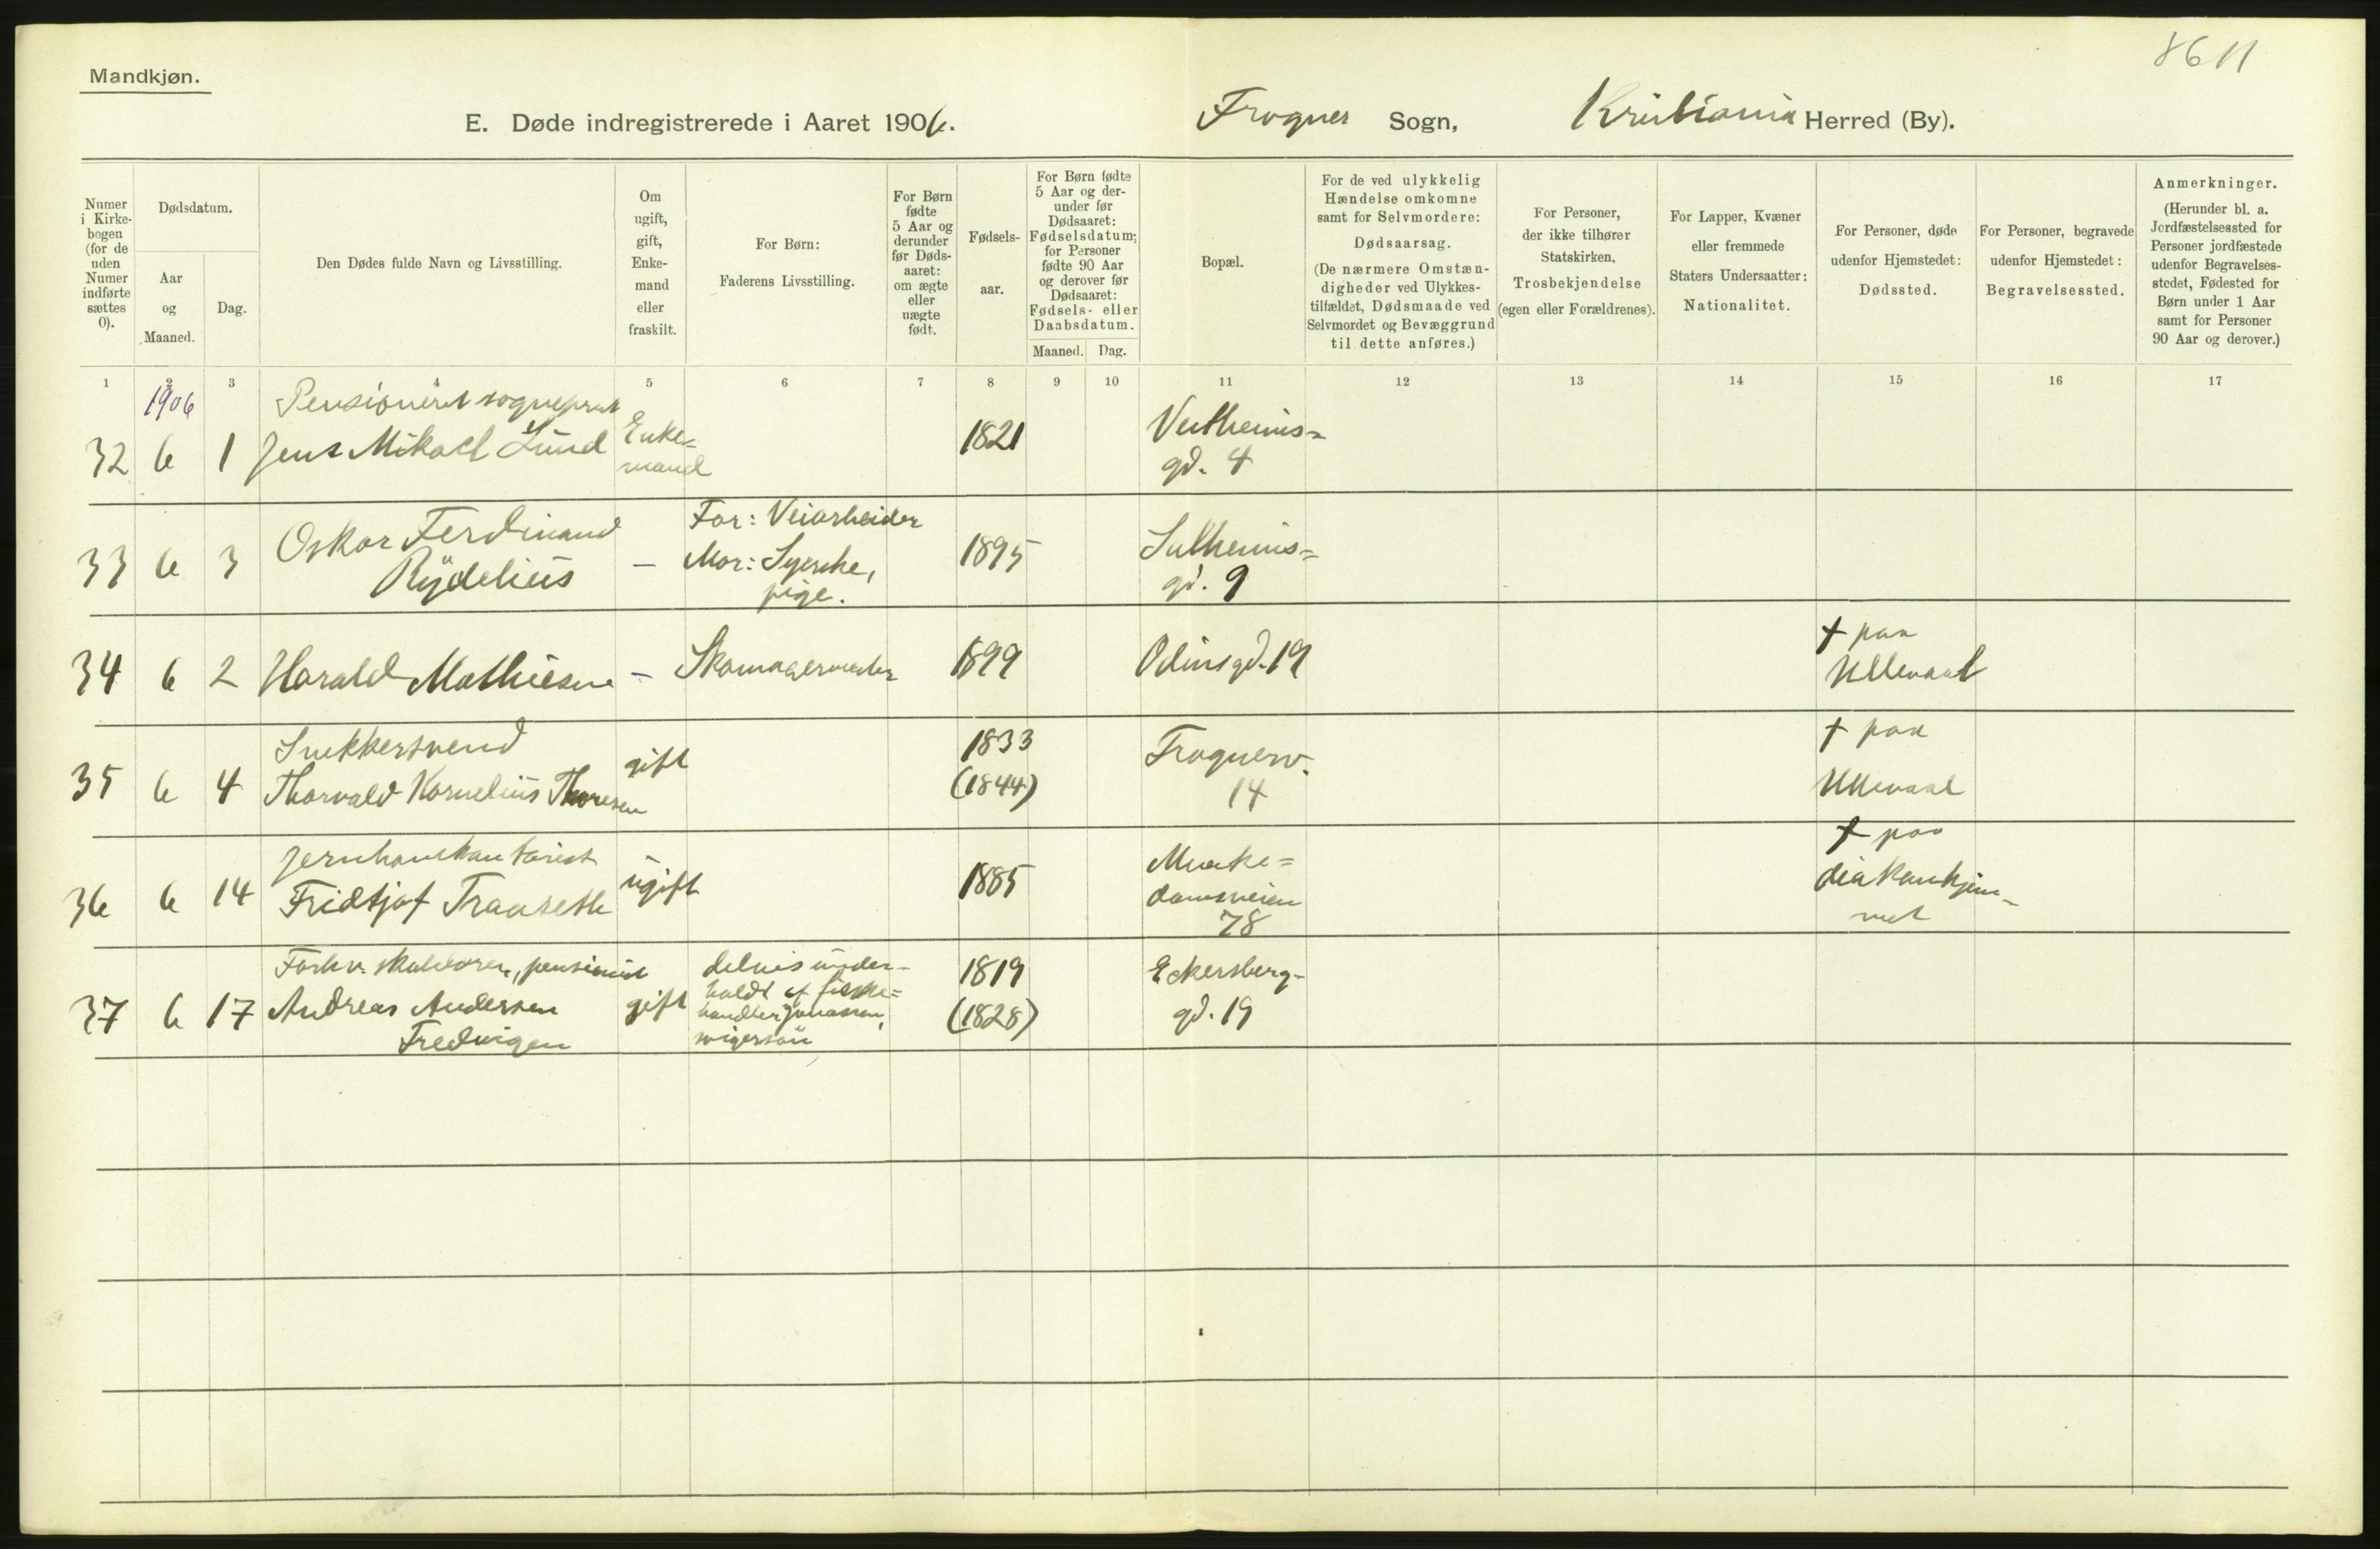 8611
Mandkjøn.
E. Døde indregistrerede i Aaret 1906. Frogner Sogn, Kristiania Herred (By).
Numer i Kirkebogen (for de uden Numer indførte sættes 0).
Dødsdatum.
Aar og Maaned.
Dag.
Den Dødes fulde Navn og Livsstilling.
Om ugift, gift, Enkemand eller fraskilt.
For Børn: Faderens Livsstilling.
For Børn fødte 5 Aar og derunder før Dødsaaret: om ægte eller uægte født.
Fødselsaar.
For Børn fødte 5 Aar og derunder før Dødsaaret: Fødselsdatum; for Personer fødte 90 Aar og derover før Dødsaaret: Fødsels- eller Daabsdatum.
Maaned. Dag.
Bopæl.
For de ved ulykkelig Hændelse omkomne samt for Selvmordere: Dødsaarsag. (De nærmere Omstændigheder ved Ulykkestilfældet, Dødsmaade ved Selvmordet og Bevæggrund til dette anføres.)
For Personer, der ikke tilhører Statskirken, Trosbekjendelse (egen eller Forældrenes).
For Lapper, Kvæner eller fremmede Staters Undersaatter: Nationalitet.
For Personer, døde udenfor Hjemstedet: Dødssted.
For Personer, begravede udenfor Hjemstedet: Begravelsessted.
Anmerkninger. (Herunder bl. a. Jordfæstelsessted for Personer jordfæstede udenfor Begravelsesstedet, Fødested for Børn under 1 Aar samt for Personer 90 Aar og derover.)
1 2 3 4 5 6 7 8 9 10 11 12 13 14 15 16 17
1906
Pensioneret sogneprest
32 6 1 Jens Mikael Lund Enke=
mand 1821
gd. 4
33 6 3 Oskar Ferdinand
Rydelius – Far: Veiarbeider
Mor: Syerske,
pige. 1895
gd. 9
34 6 2 Harald Mathiesen – Skomagermester 1899 Odinsgd. 19 † paa
Ullevaal
Snekkersvend
35 6 4 Thorvald Kornelius Thoresen gift 1833
(1844) Frognerv.
14 † paa
Ullevaal
36 6 14 Fridtjof Traaseth ugift 1885 Munke=
damsveien
78 † paa
diakonhjem-
met
Forhv. pensionist
37 6 17 Andreas Andersen
Fredvigen gift delvis under-
holdt af fiske=
handler Jonassen,
svigersøn 1819
(1828) Eckersberg-
gd. 19